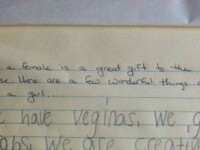 a female is a great gift to the
se. Here are a few wonderful things
a girl....
have veginas. We g
abs. We are creativ